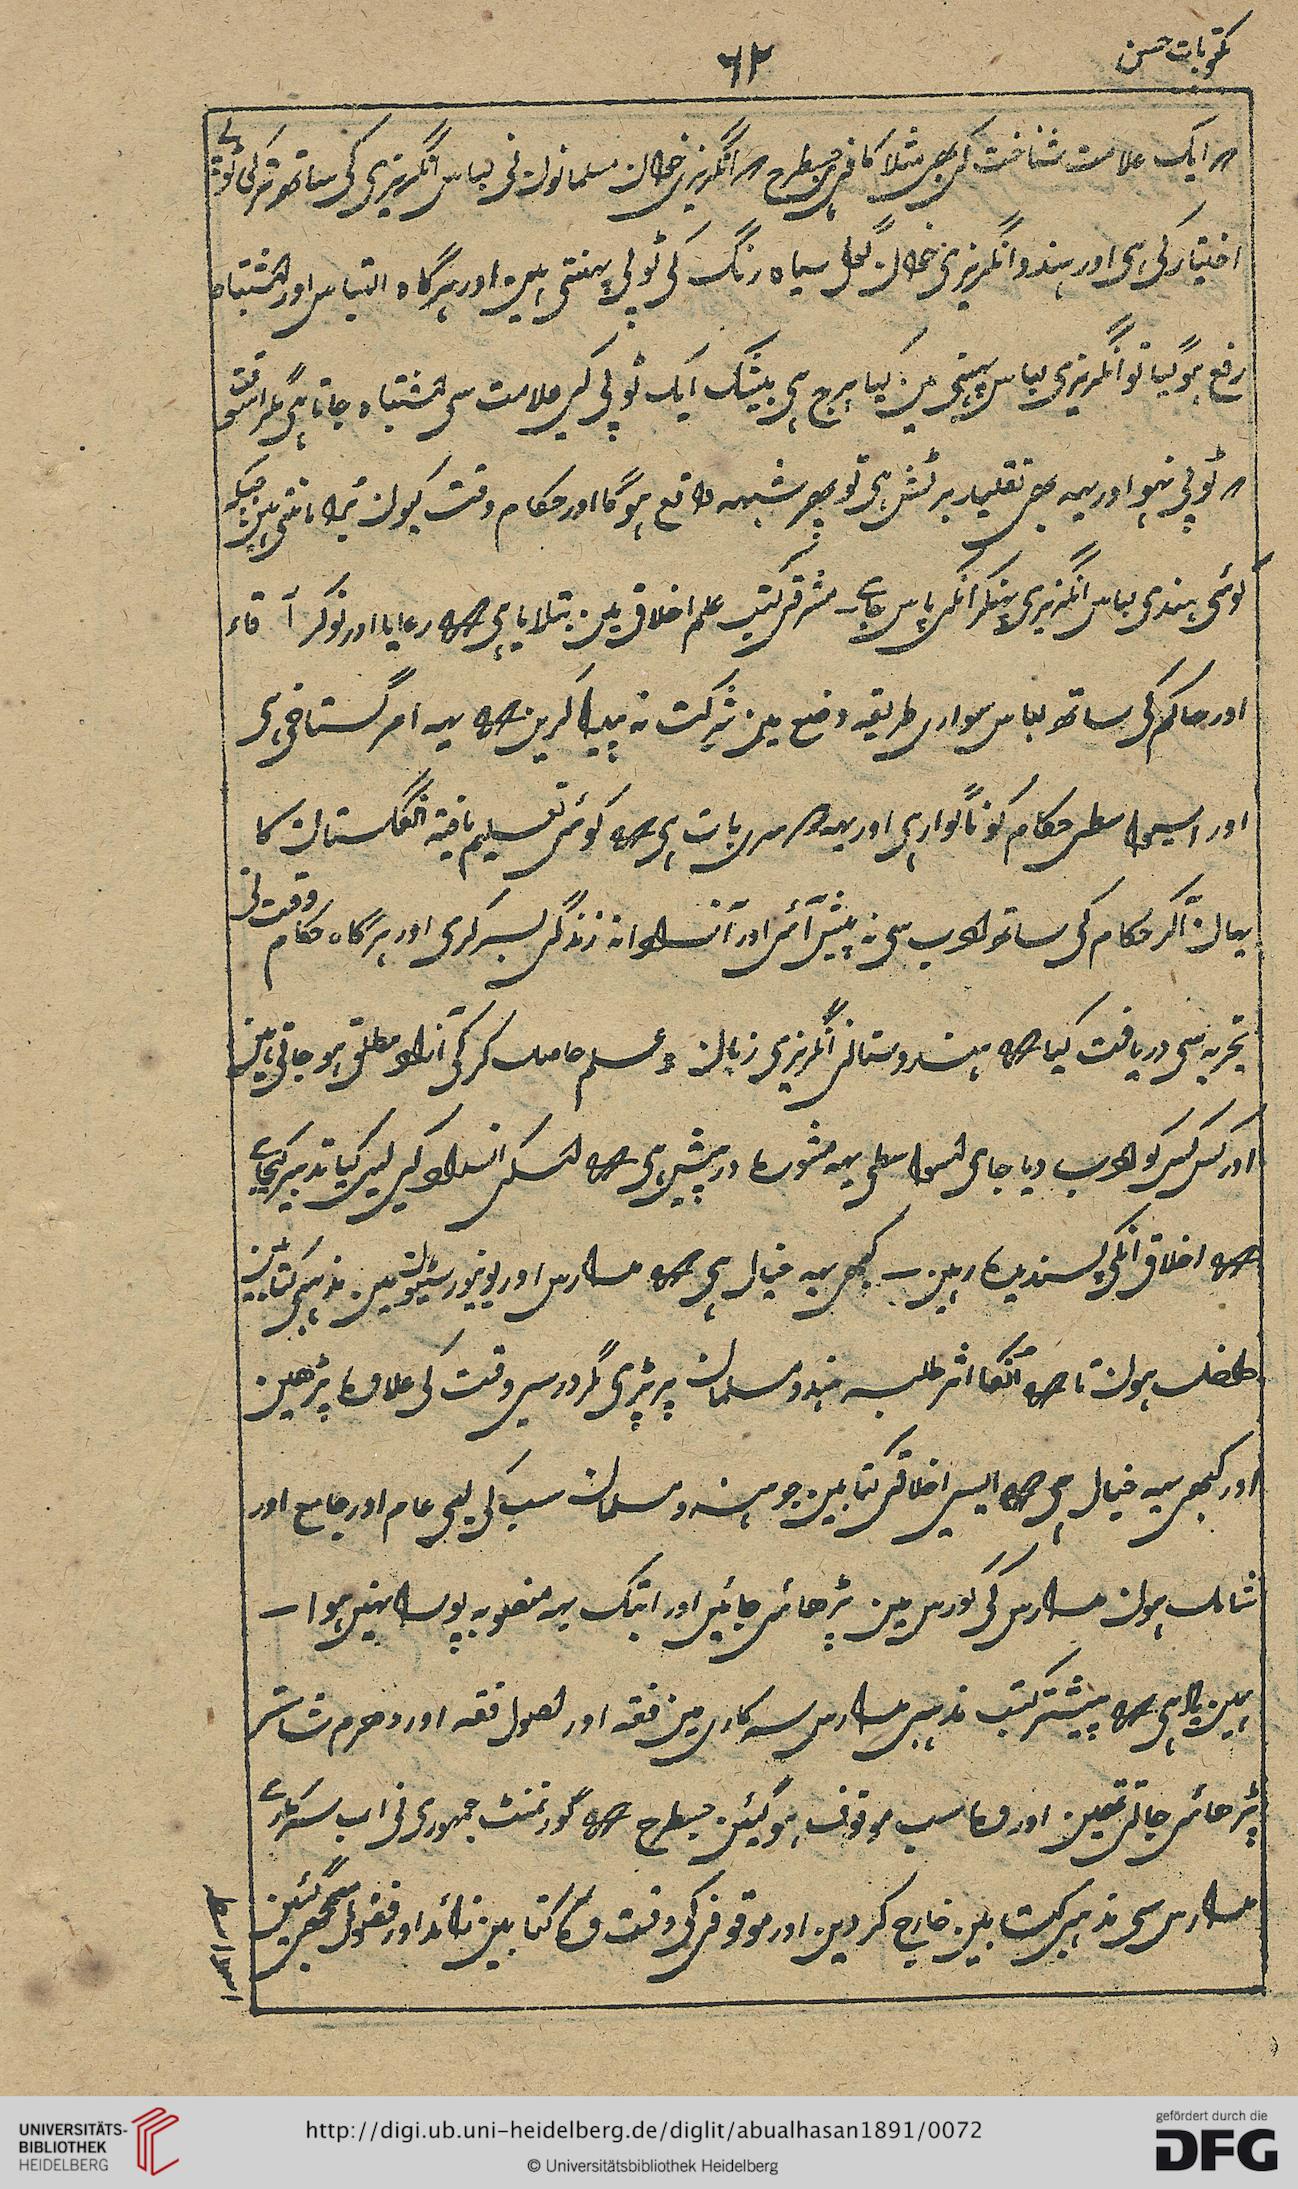 مکتوبات حسن
۶۲
ہر ایک علامت شناخت کی بھی مثلا کافی ہی جسطرح ہر انگریزی خوان مسلمانون نی لباس انگریزی کی ساتھ ترکی ٹوپی
اختیار کی ہی اور ہندو انگریزی خوان گول سیاہ رنگ کی ٹوپی پہنتی ہین اور ہرگاہ التباس اور اشتباہ
رفع ہوگیا تو انگریزی لباس پہننی مین کیا ہرج ہی بیشک ایک ٹوپی کی علامت سی اشتباہ جاتا ہی مگر اسوقت
ٹوپی نہو اور یہہ بھی تقلید برٹش ہی تو پھر شبہہ واقع ہوگا اور حکام وقت کیون برا مانتی ہین جبکہ
کوئی ہندی لباس انگریزی پہنکر انکی پاس جاے ــ مشرقی کتب علم اخلاق مین بتلایا ہی کہ رعایا اور نوکر آقاء
اور حاکم کی ساتھ لباس سواری طریقہ وضع مین شرکت نہ پیدا کرین کہ یہہ امر گستاخی ہی
اور اسیواسطی حکام کو ناگوار ہی اور یہہ دوسری بات ہی کہ کوئی تعلیم یافتہ انگلستان کا
یہان آکر حکام کی ساتھ ادب سی نہ پیش آئی اور آزادانہ زندگی بسر کری اور ہرگاہ حکام وقت نی
تجربہ سی دریافت کیا کہ ہندوستانی انگریزی زبان و علم حاصل کرکی آزاد مطلق ہو جاتی ہین
اور کس کس کو ادب دیا جای اسواسطی یہہ مشورہ درپیش ہی کہ اسکی انسداد کی لیی کیا تدبیر کیجاے
کہ اخلاق انکی پسندیدہ رہین ــ کبھی یہہ خیال ہی کہ مدارس اور یونیورسٹیون مین مذہبی کتابین
داخل ہون تا کہ انکا اثر طلبہ ہندو مسلمان پر پڑی مگر درسی وقت کی علاوہ پڑھین
اور کبھی یہہ خیال ہی کہ ایسی اخلاقی کتابین جو ہندو مسلمان سب کی لیی عام اور جامع اور
شامل ہون مدارس کی کورس مین پڑھائی جائین اور ابتک یہہ منصوبہ پورا نہین ہوا ــ
ہمین یاد ہی کہ پیشتر کتب مذہبی مدارس سرکاری مین فقہ اور اصول فقہ اور دھرم شاستر
پڑھائی جاتی تھین اور وہ سب موقوف ہوگیئن جسطرح کہ گورنمنٹ جمہوری نی اب سرکاری
مدارس سی مذہبی کتابین خارج کر دین اور موقوفی کی وقت وہ کتابین زائد اور فضول سمجھی گیئن
UNIVERSITÄTS-
BIBLIOTHEK
HEIDELBERG
http://digi.ub.uni-heidelberg.de/diglit/abualhasan1891/0072
© Universitätsbibliothek Heidelberg
gefördert durch die
DFG